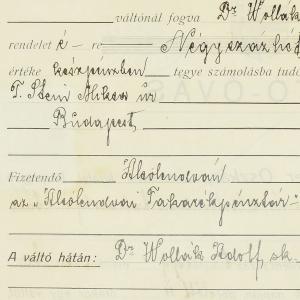 váltónál fogva Dr Wollák
rendelet é - re Négyszázhé
értéke készpénzben tegye számolásba tud
T. Stein Miksa úr
Budapest
Fizetendő Alsólendván
az "Alsólendvai Takarékpénztár"
A váltó hátán: Dr. Wollák Adolf, sk.